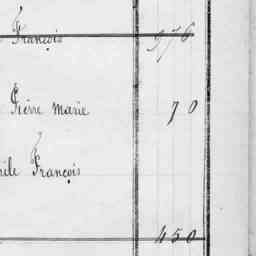 François 976
Pierre Marie 70
François
450